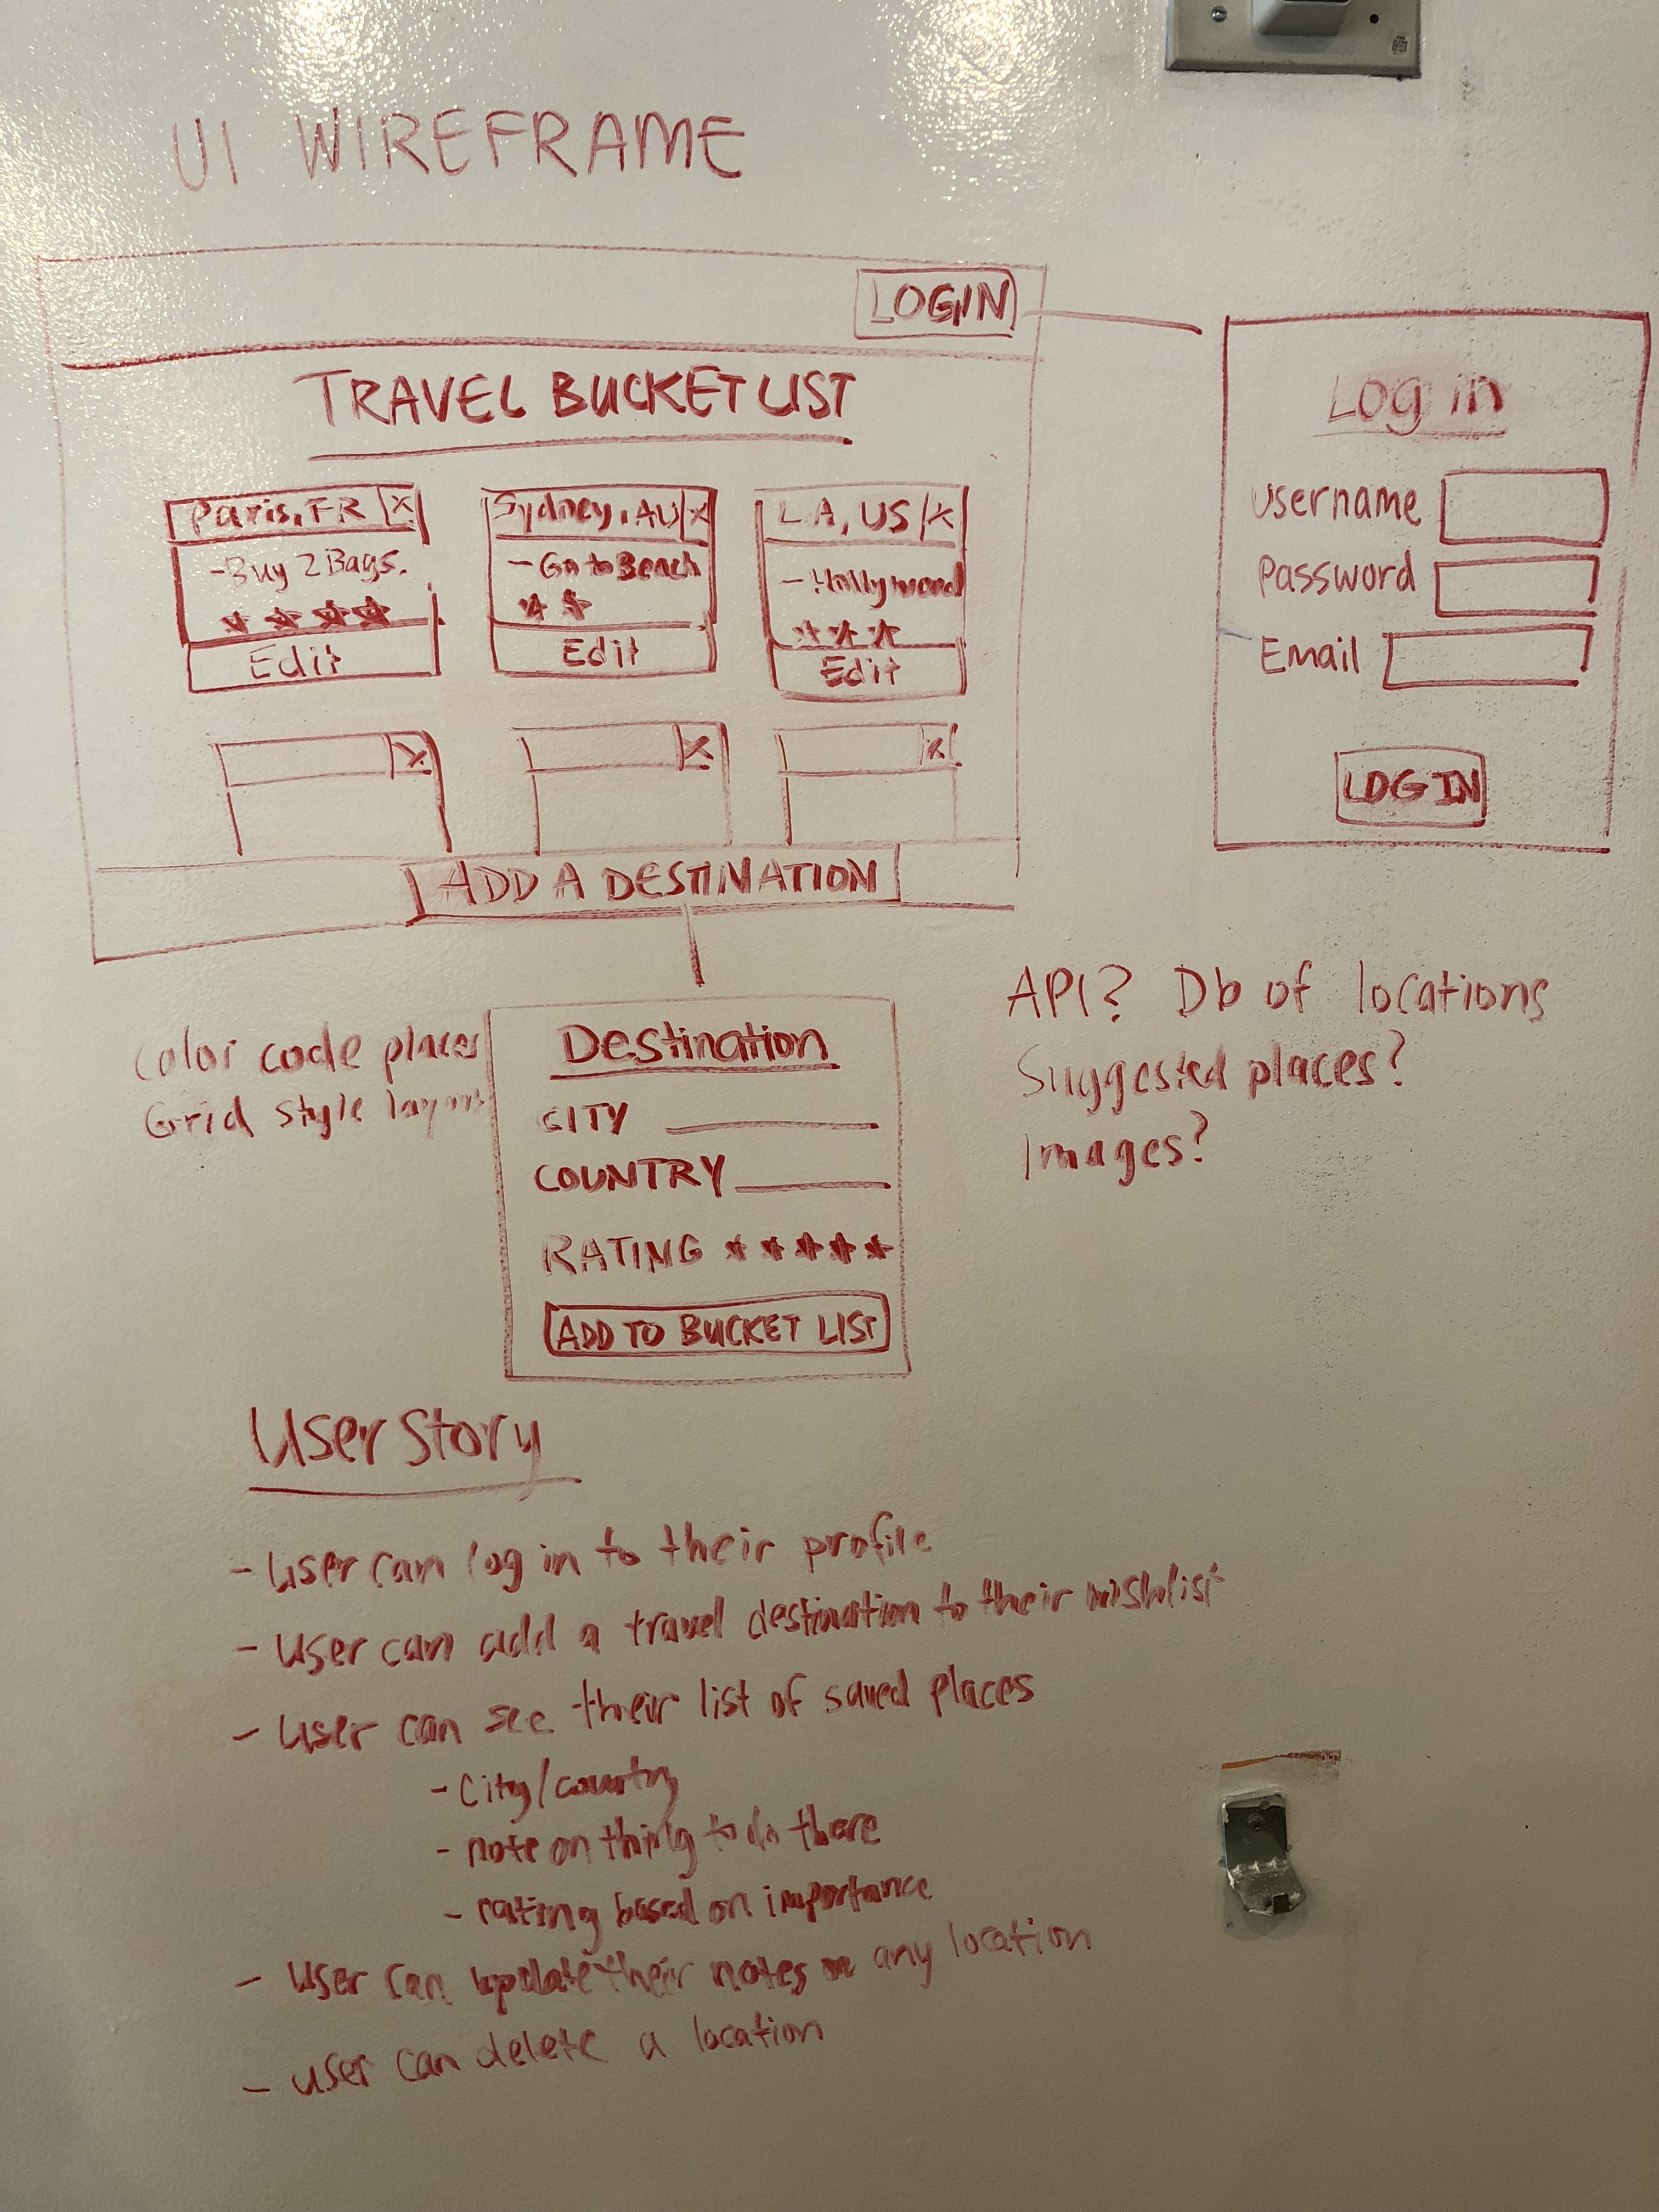 UI WIREFRAME
LOGIN
TRAVEL BUCKET LIST
Paris, FR X
- Buy 2 Bags.
★ ★ ★ ★
Edit
Sydney, AU X
- Go to Beach
★ ★
Edit
LA, US X
- Hollywood
★ ★ ★
Edit
X
X
X
ADD A DESTINATION
Log in
Username
Password
Email
LOG IN
Color code places
Grid style layout
Destination
CITY
COUNTRY
RATING ★ ★ ★ ★ ★
ADD TO BUCKET LIST
API? Db of locations
Suggested places?
Images?
User Story
- User can log in to their profile
- User can add a travel destination to their wishlist
- User can see their list of saved places
- City/country
- note on thing to do there
- rating based on importance
- User can update their notes on any location
- user can delete a location